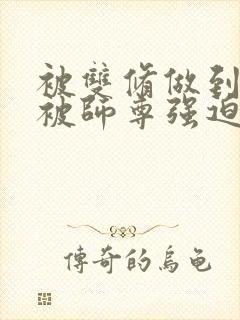 被雙脩做到
被師尊强迫
傳奇的烏龜